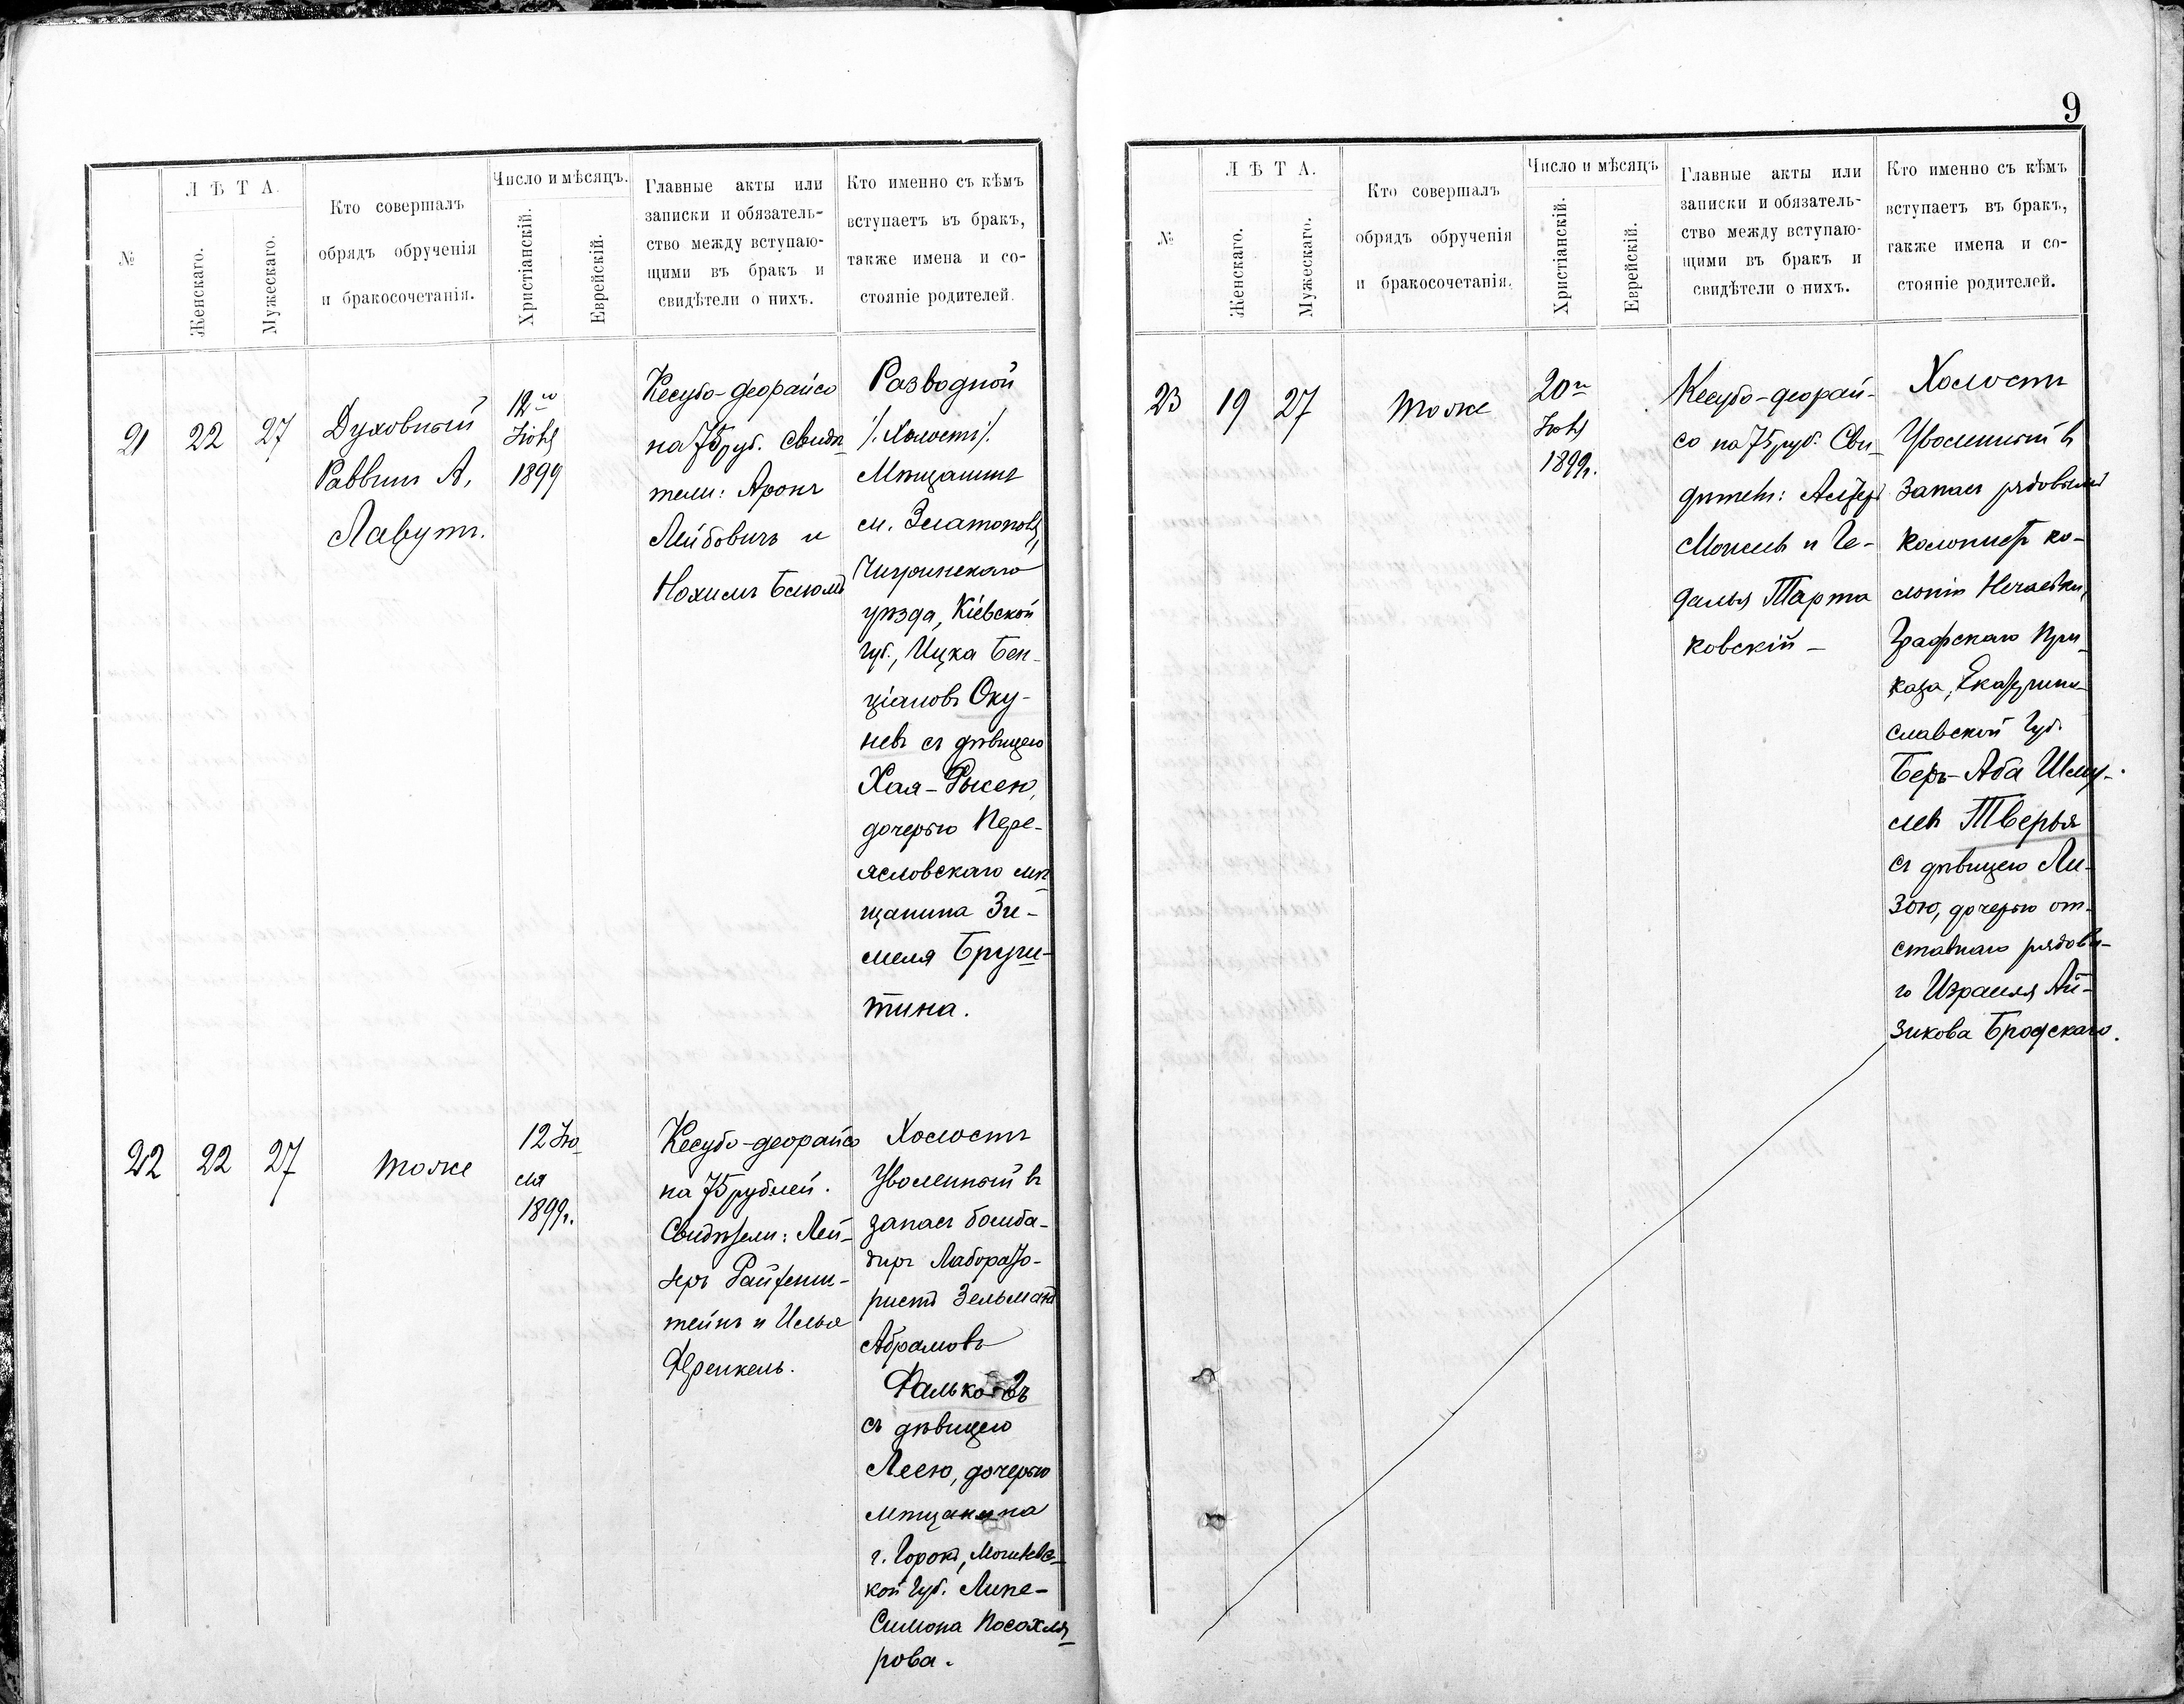 Л Ѣ Т А.
№
Женскаго.
Мужескаго.
Кто совершалъ
обрядъ обрученія
и бракосочетанія.
Число и мѣсяцъ.
Христіанскій.
Еврейскій.
Главные акты или
записки и обязатель-
ство между вступаю-
щими въ бракъ и
свидѣтели о нихъ.
Кто именно съ кѣмъ
вступаетъ въ бракъ,
также имена и со-
стояніе родителей.
21
22
27
Духовный
Раввинъ А.
Лавутъ.
12го
Іюня
1899
Кесубо-деорайсо
на 75 руб. Свидѣ
тели: Аронъ
Лейбовичъ и
Нохимъ Блюмъ
Разводной
/. Холостъ /.
Мѣщанинъ
м. Златополя,
Чигиринскаго
уѣзда, Кіевской
губ., Ицка Бен-
ціановъ Оку-
невъ съ дѣвицею
Хая-Рысею,
дочерью Пере-
ясловскаго мѣ
щанина Зи-
меля Бруги-
тина.
22
22
27
тоже
12 Ію
ля
1899г.
Кесубо-деорайсо
на 75 рублей.
Свидѣтели: Лей-
зеръ Райхенш-
тейнъ и Илья
Френкель.
Холостъ
Уволенный въ
запасъ бомба-
диръ Лаборато-
ристъ Зельманъ
Абрамовъ
Фальковъ
съ дѣвицею
Леею, дочерью
мѣщанина
г. Горокъ, Могилевс-
кой губ. Липе-
Симона Посохля
рова.
9
№
Л Ѣ Т А.
Женскаго.
Мужескаго.
Кто совершалъ
обрядъ обрученія
и бракосочетанія.
Число и мѣсяцъ
Христіанскій.
Еврейскій.
Главные акты или
записки и обязатель-
ство между вступаю-
щими въ бракъ и
свидѣтели о нихъ.
Кто именно съ кѣмъ
вступаетъ въ бракъ,
также имена и со-
стояніе родителей.
23
19
27
тоже
20го
Іюля
1899г.
Кесубо-деорай-
со на 75 руб. Сви-
дѣтели:
и Ге-
далья Тарта
ковскій -
Холостъ
Уволенный въ
запасъ рядовымъ
колонистъ ко-
лоніи Нечаевки,
Графскаго При-
каза, Екатерино-
славской губ.
Беръ-Аба Шму-
левъ Тверья
съ дѣвицею Ли-
зою, дочерью от-
ставнаго рядово-
го Израиля Ай-
зикова Бродскаго.